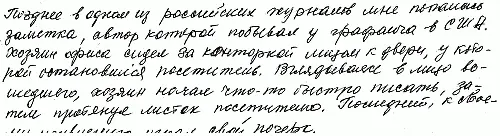 Позднее в одном из российских журналов мне попалась
заметка, автор которой побывал у графолога в США.
Хозяин офиса сидел за конторкой лицом к двери, у кото-
рой остановился посетитель. Вглядываясь в лицо во-
шедшего, хозяин начал что-то быстро писать, за-
тем протянул листок посетителю. Последний, к
свой почерк.